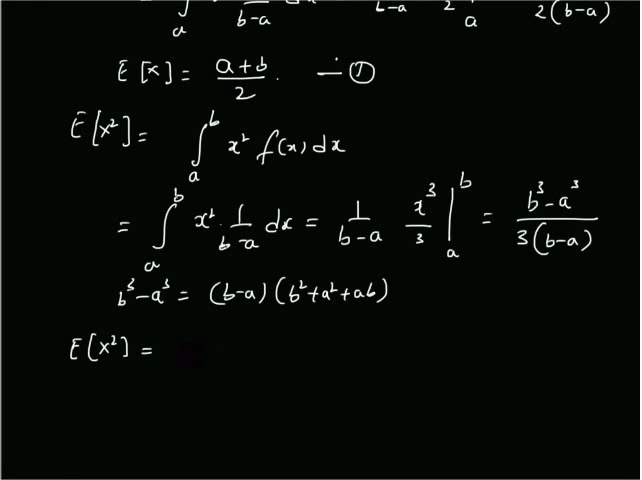 ∫ₐ b-a b-a 2 a 2(b-a)
E[x] = a+b/2 . — ①
E[x²] = ∫ₐᵇ x² f(x) dx
= ∫ₐᵇ x² · 1/(b-a) dx = 1/(b-a) x³/3 |ₐᵇ = b³-a³/3(b-a)
b³-a³ = (b-a)(b²+a²+ab)
E[x²] =